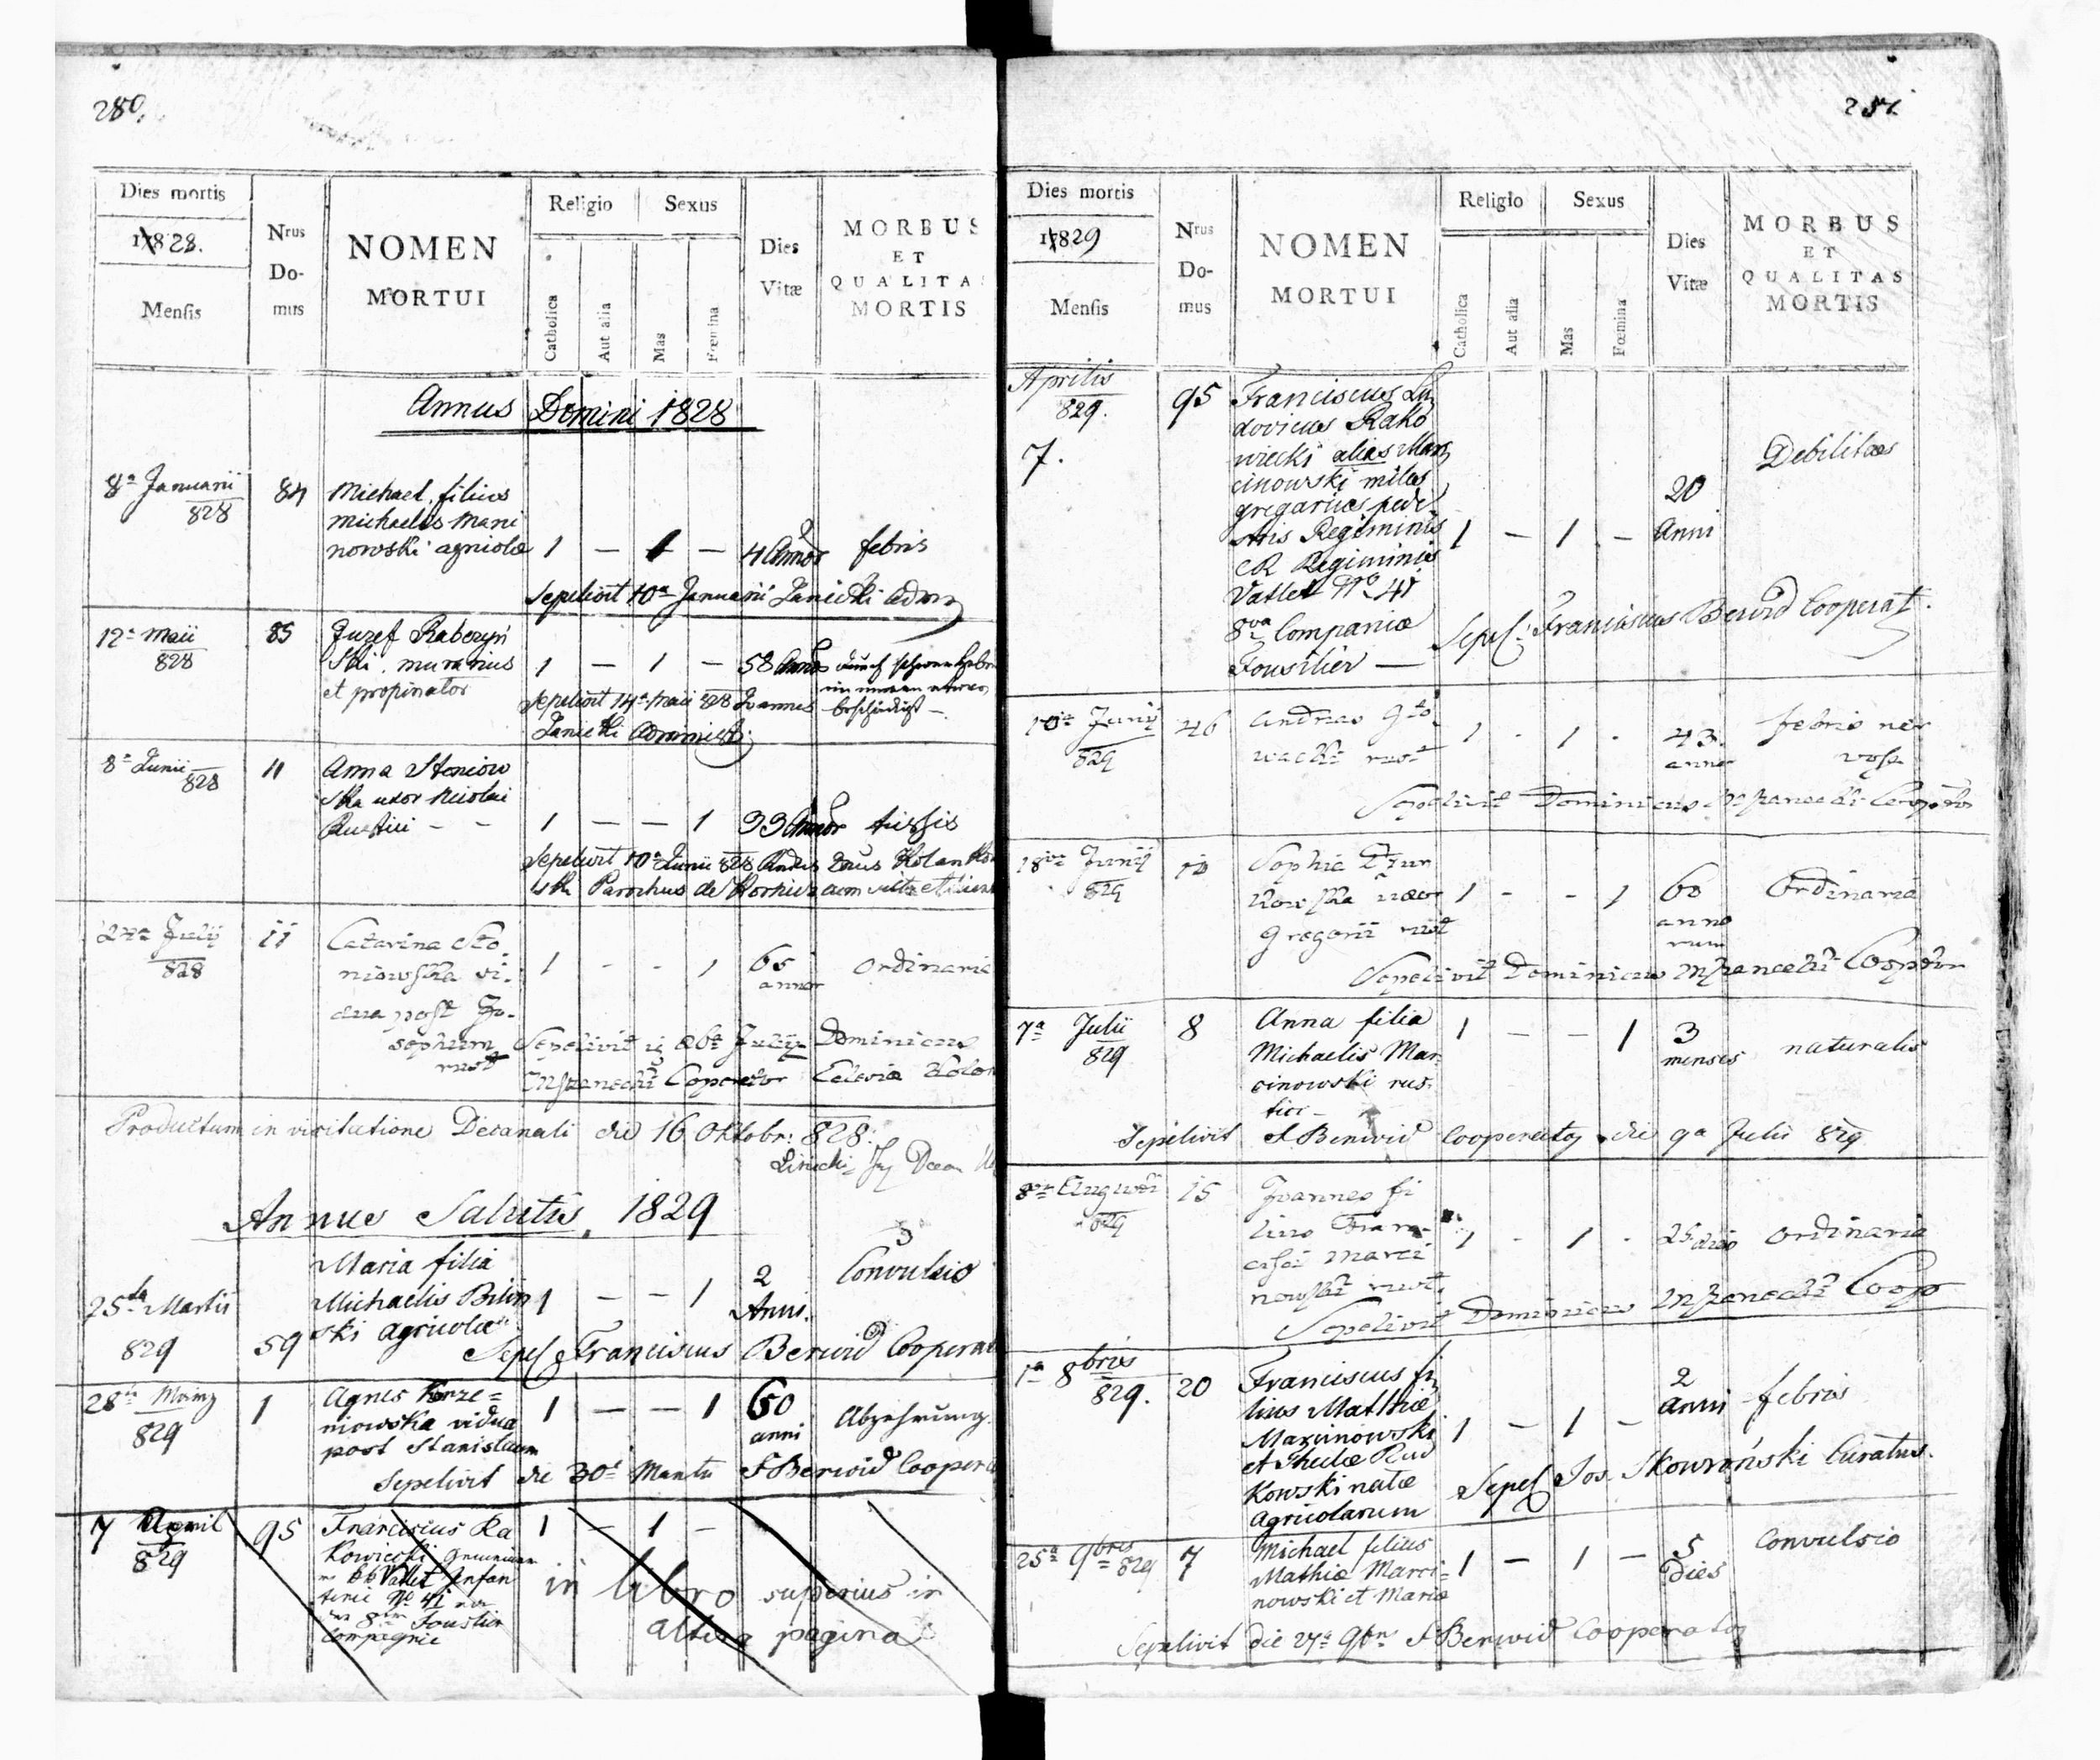 280.
Dies mortis
1828.
Mensis
Nrus
Do-
mus
NOMEN
MORTUI
Religio
Sexus
Catholica
Aut alia
Mas
Fœmina
Dies
Vitæ
MORBUS
ET
QUALITA
MORTIS
Annus Domini 1828
8a Januarii
828
84
Michael filius
Michaelis Mani
nowski agricolæ
1 — 1 —
4 Annor
febris
Sepelivit 10a Januarii Janicki Adm
12a Maii
828
85
Juzef Rabczyń
ski murarius
et propinator
1 — 1 —
58 Annor
beschädigt —
Sepelivit 14a Maii 828 Joannes
Janicki Administr
8a Junii
828
11
Anna Stoniow
ska uxor Nicolai
Rustici — —
1 — — 1
33 Annor
tussis
Sepelivit 10a Junii 828
Parochus de
24a Julij
828
11
Catarina Sto-
niowska vi-
dua post Jo-
sephum
rust
1 - - 1
65
annor
ordinaria
Sepelivit 26a Julij Dominicus
Coperator Eclesiæ
Productum in visitatione Decanali die 16 Oktobr: 828.
Annus Salutis 1829
25ta Martii
829
59
Maria filia
Michaelis Bilin
ski agricolæ
1 — — 1
2
Anni.
Convulsio
Sepel Franciscus Berwid Cooperat
28
829
1
Agnes Korze=
niowska vidua
post Stanislaum
1 — — 1
60
anni
Abzehrung.
Sepelivit die 30a Martii F Berwid Coopera
7 April
829
95
Franciscus Ra
kowiecki
Vatlet Infan
terie No 41
8 Fousilier
Compagnie
1 — 1 —
in libro superius in
altera pagina
Dies mortis
1829
Mensis
Nrus
Do-
mus
NOMEN
MORTUI
Religio
Sexus
Catholica
Aut alia
Mas
Fœmina
Dies
Vitæ
MORBUS
ET
QUALITAS
MORTIS
Aprilis
829.
7.
95
Franciscus Lu
dovicus Rako
wiecki alias Mar
cinowski miles
gregarius pede
stris Regiminis
CR Regiminis
Vatlet No 41
8va Compania
Fousilier —
1 — 1 —
20
Anni
Debilitas
Sepel: Franciscus Berwid Cooperat.
10 Junij
829
46
Andreas
rust
1 - 1 -
43.
annor
febris ner
vosa
Sepelivit Dominicus
18 Junij
829
10
Sophia
kowska uxor
Gregorii rust
1 - - 1
60
anno
rum
Ordinaria
Sepelivit Dominicus
7a Julii
829
8
Anna filia
Michaelis Mar
cinowski rus
tici —
1 — — 1
3
menses
naturalis
Sepelivit F Berwid Cooperator die 9a Julii 829
8va Augusti
829
15
Joannes fi
lius Fran-
cisci Marci
nowski rust.
1 - 1 -
25 dies
ordinaria
Sepelivit Dominicus Coop
1a 8bris
829.
20
Franciscus fi
lius Mathiæ
Marcinowski
et Theclæ Rud
kowski natæ
agricolarum
1 — 1 —
2
anni
febris
Sepel Jos. Skowroński Curatus.
25a 9bris
829
7
Michael filius
Mathiæ Marci=
nowski et Mariæ
1 — 1 —
5
Dies
Convulsio
Sepelivit die 27a 9br F Berwid Cooperator